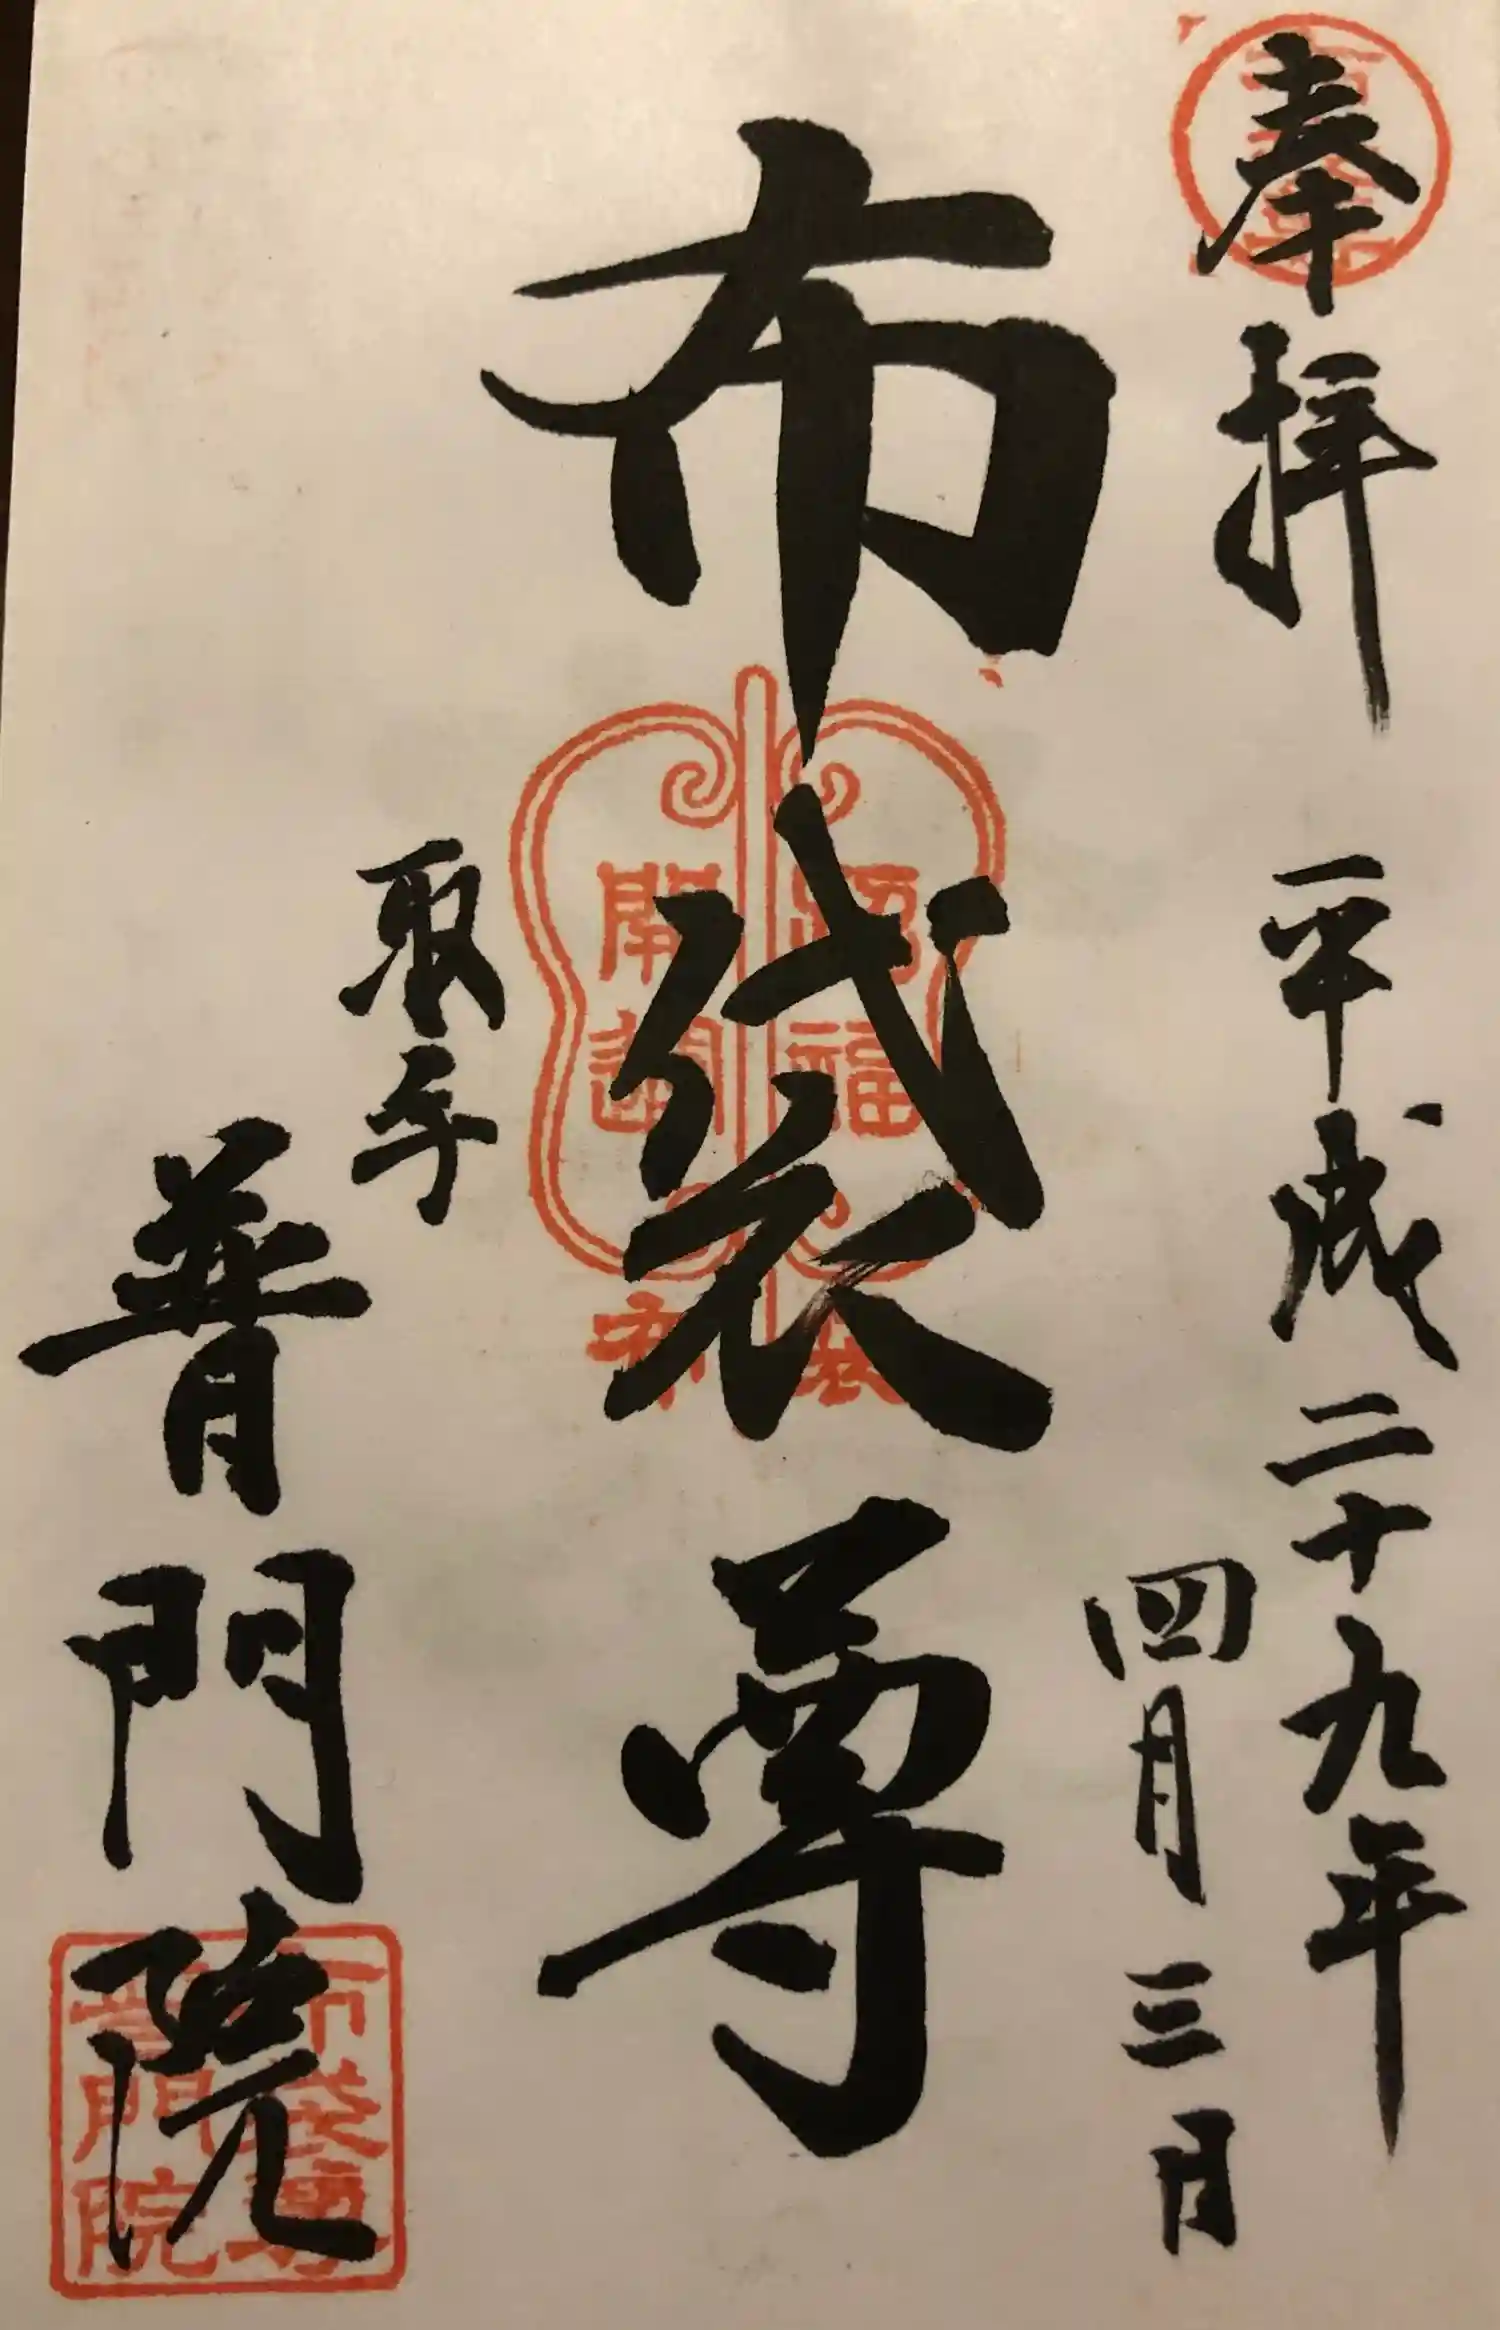 奉拝
平成二十九年
四月三日
布袋尊
取手
普門院
招福
開運
布袋
布袋尊
普門院